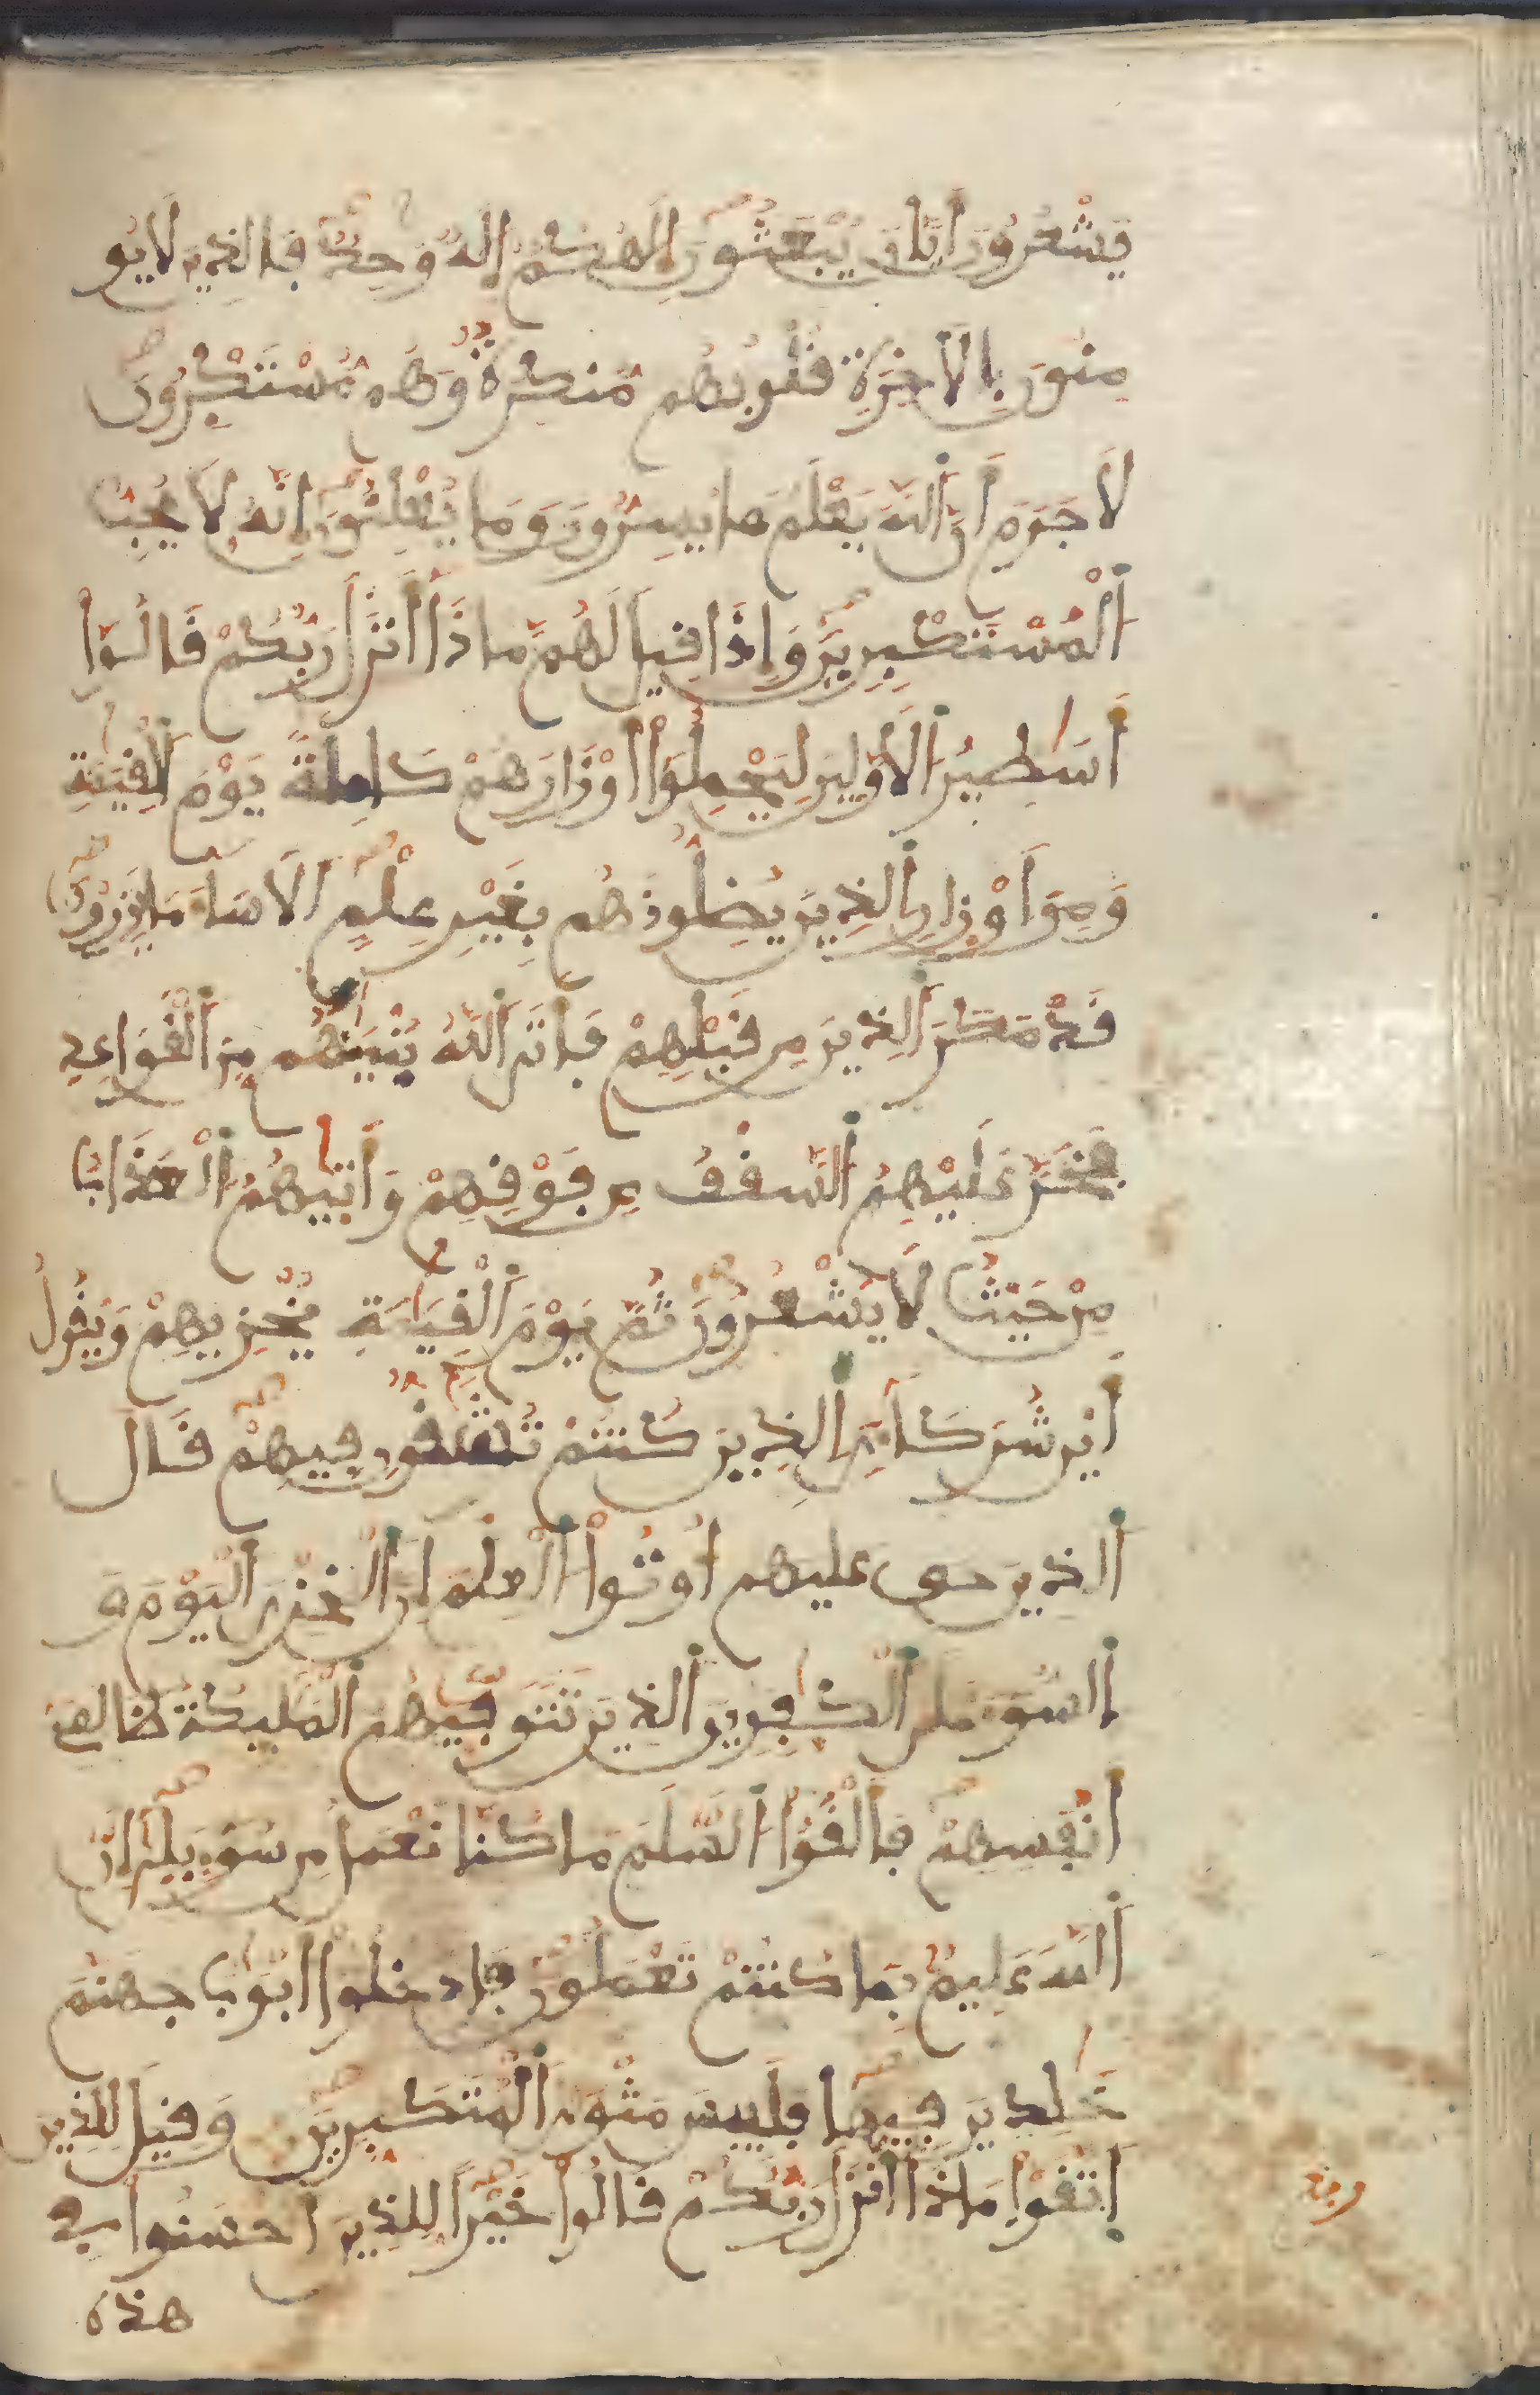 يَشْعُرُونَ أَيَّانَ يُبْعَثُونَ إِلَٰهُكُمْ إِلَٰهٌ وَٰحِدٌ فَالذِينَ لَا يُو
مِنُونَ بِالَاخِرَةِ قُلُوبُهُم مُّنكِرَةٌ وَهُم مُّسْتَكْبِرُونَ
لَا جَرَمَ أَنَّ اَللَّهَ يَعْلَمُ مَا يُسِرُّونَ وَمَا يُعْلِنُونَ إِنَّهُ لَا يُحِبُّ
اَلْمُسْتَكْبِرِينَ وَإِذَا قِيلَ لَهُم مَّاذَا أَنزَلَ رَبُّكُمْ قَالُوٓا
أَسَٰطِيرُ اُلَاوَّلِينَ لِيَحْمِلُوٓا أَوْزَارَهُمْ كَامِلَةً يَوْمَ اَلْقِيَٰمَةِ
وَمِنَ اَوْزَارِ اِلذِينَ يُضِلُّونَهُم بِغَيْرِ عِلْمٍ اَلَا سَآءَ مَا يَزِرُونَ
قَدْ مَكَرَ اَلذِينَ مِن قَبْلِهِمْ فَأَتَى اَللَّهُ بُنْيَٰنَهُم مِّنَ اَلْقَوَاعِدِ
فَخَرَّ عَلَيْهِمُ اُلسَّقْفُ مِن فَوْقِهِمْ وَأَتَيٰهُمُ اُلْعَذَابُ
مِنْ حَيْثُ لَا يَشْعُرُونَ ثُمَّ يَوْمَ اَلْقِيَٰمَةِ يُخْزِيهِمْ وَيَقُولُ
أَيْنَ شُرَكَآءِيَ اَلذِينَ كُنتُمْ تُشَٰٓقُّونِ فِيهِمْ قَالَ
اَلذِينَ حى عليهم أُوتُوا اُلْعِلْمَ إِنَّ اَلْخِزْيَ اَلْيَوْمَ وَ
اَلسُّوٓءَ عَلَى اَلْكَٰفِرِينَ اَلذِينَ تَتَوَفَّيٰهُمُ اُلْمَلَٰٓئِكَةُ ظَالِمِي
أَنفُسِهِمْ فَأَلْقَوُا اُلسَّلَمَ مَا كُنَّا نَعْمَلُ مِن سُوٓءٍ بَلَىٰٓ إِنَّ
اَللَّهَ عَلِيمٌ بِمَا كُنتُمْ تَعْمَلُونَ فَادْخُلُوٓا أَبْوَٰبَ جَهَنَّمَ
خَٰلِدِينَ فِيهَا فَلَبِيسَ مَثْوَى اَلْمُتَكَبِّرِينَ وَقِيلَ لِلذِينَ
اَتَّقَوْا مَاذَآ أَنزَلَ رَبُّكُمْ قَالُوا خَيْرًا لِّلذِينَ أَحْسَنُوا فِي
هذه